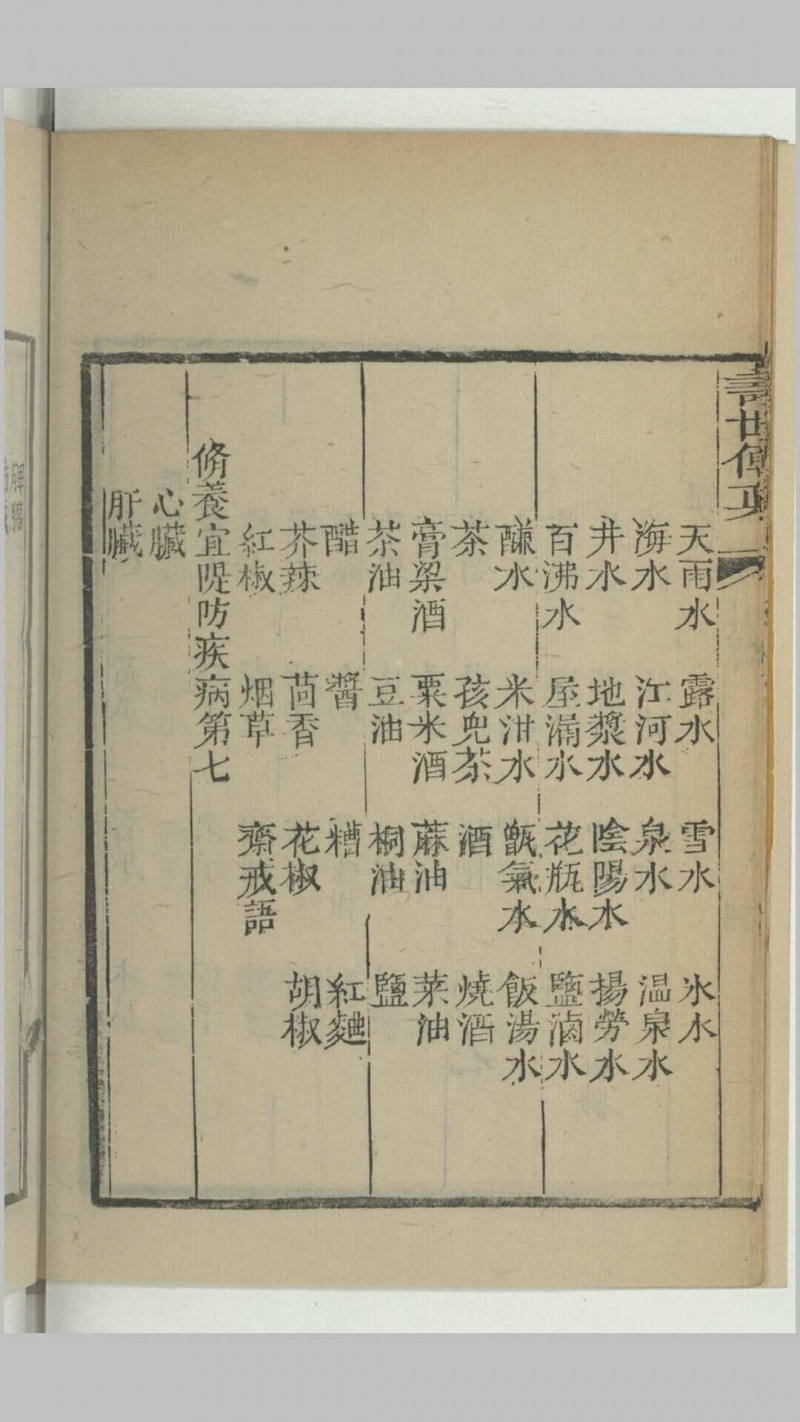 壽世傳眞
天雨水 露水 雪水 氷水
海水 江河水 泉水 温泉水
井水 地漿水 陰陽水 揚勞水
百沸水 屋漏水 花瓶水 鹽滷水
醶水 米泔水 甑氣水 飯湯水
茶 孩兒茶 酒 燒酒
膏粱酒 粟米酒 蔴油 菜油
茶油 豆油 桐油 鹽
醋 醬 糟 紅麯
芥辣 茴香 花椒 胡椒
紅椒 烟草 齋戒語
脩養宜隄防疾病第七
心臟
肝臟
脾臟